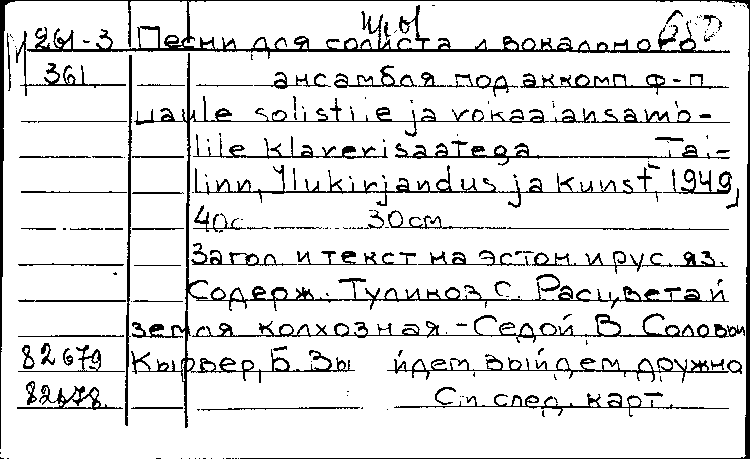 М 261-3 Песни для солиста и вокального
361 ансамбля под аккомп. ф-п
Laule solistile ja vokaalansamb-
lile klaverisaatega. Tal-
linn, Ilukirjandus ja Kunst, 1949,
40с. 30см.
Загол. и текст на эстон. и рус. яз.
Содерж.: Туликоз, С. Расцветай
земля колхозная. - Седой, В. Соловьи
82679 Кырвер, Б. Вы йдем, выйдем, дружно
82678. См. след. карт.